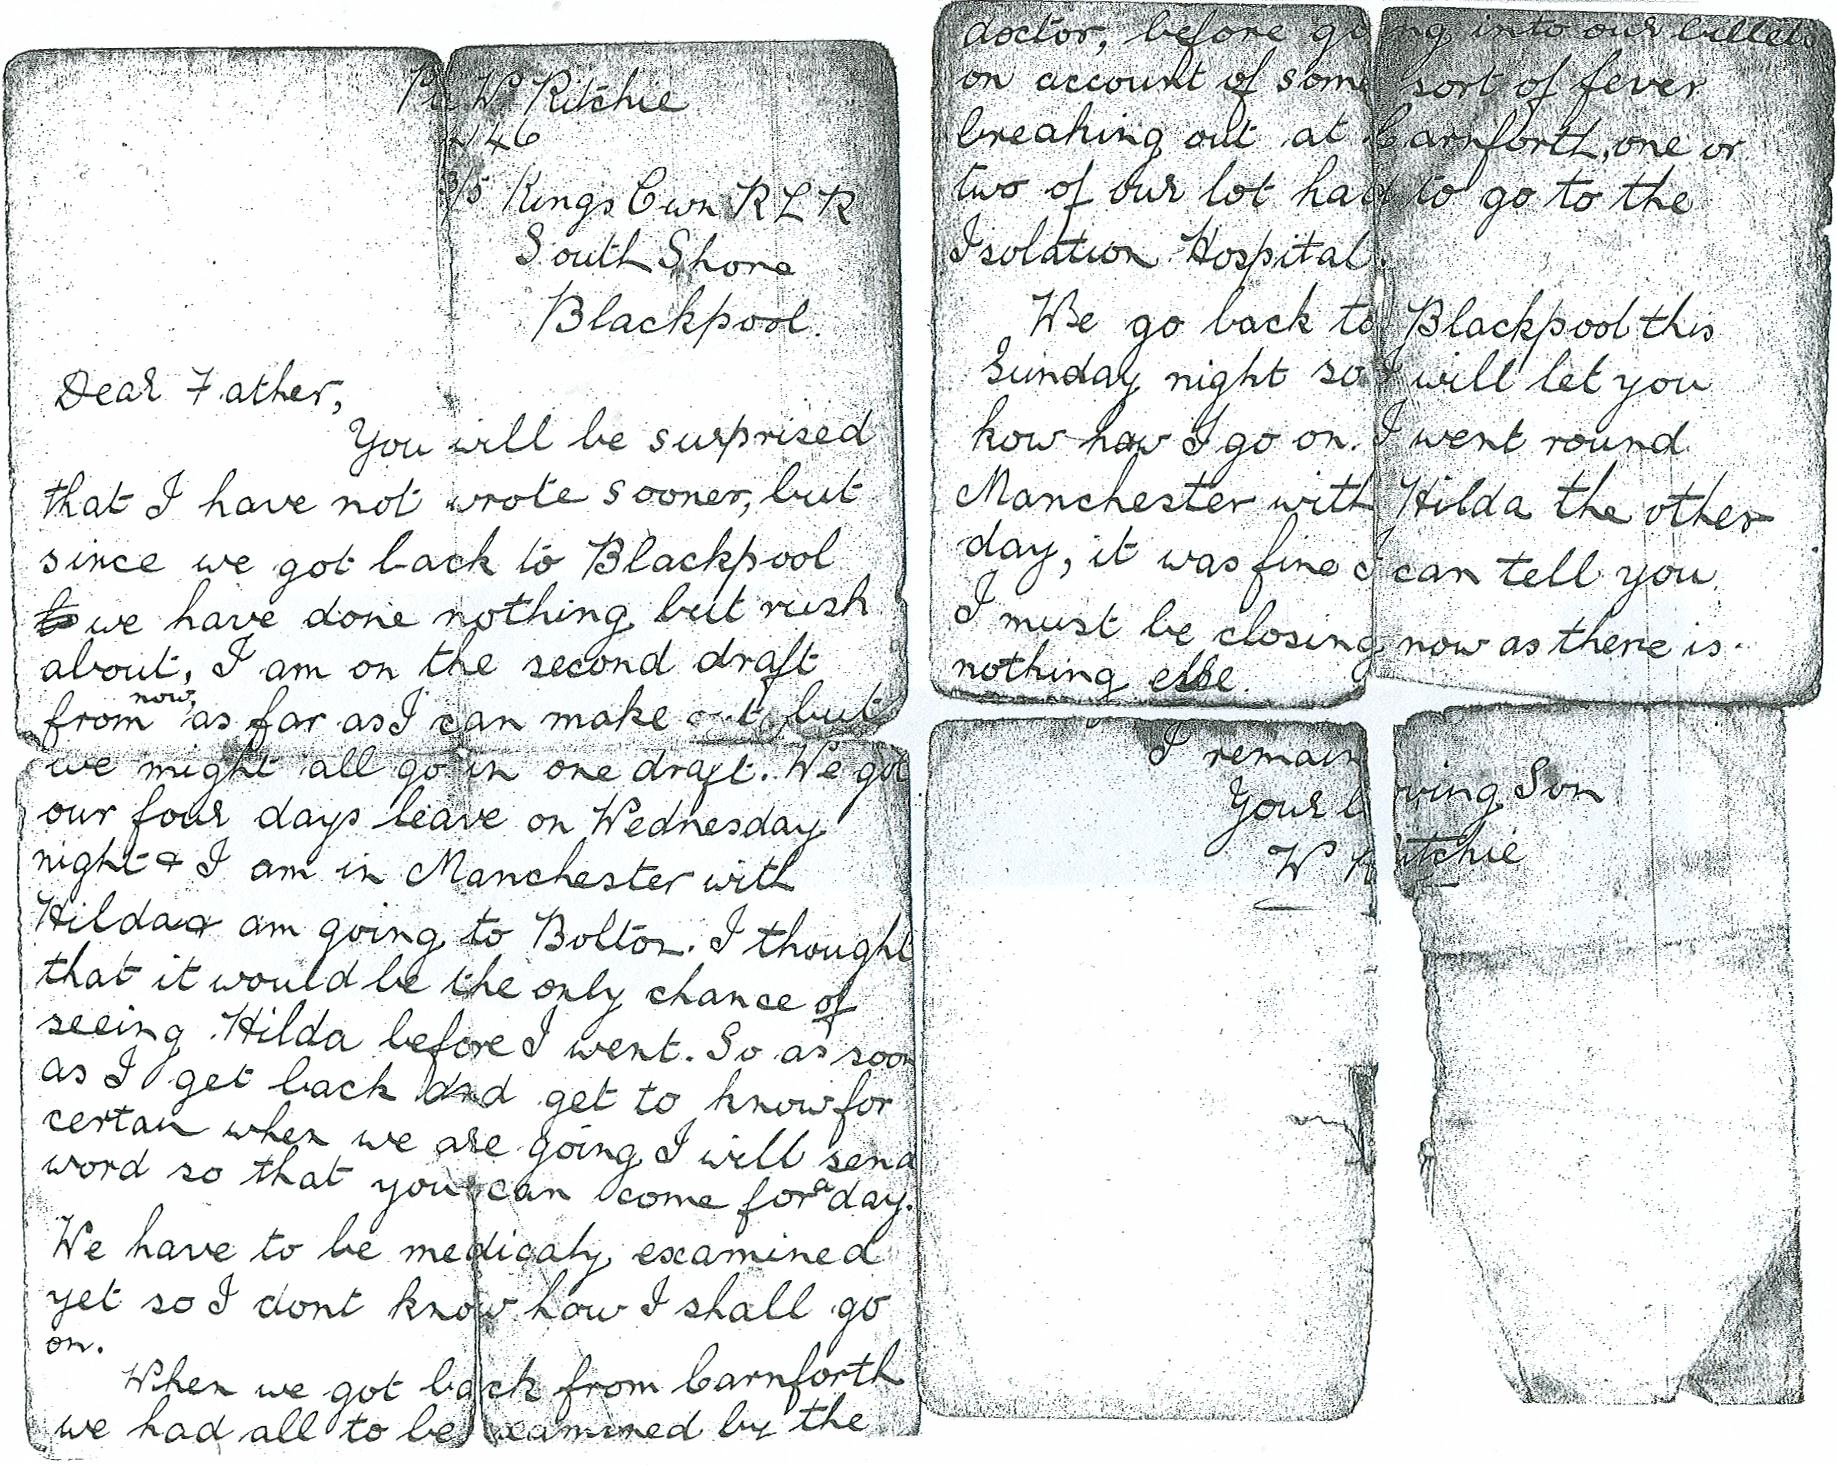 Pte W Ritchie
4146
3/5 Kings Own R L R
South Shore
Blackpool.
Dear Father,
You will be surprised
that I have not wrote sooner, but
since we got back to Blackpool
to we have done nothing but rush
about, I am on the second draft
from now, as far as I can make out, but
we might all go in one draft. We got
our four days leave on Wednesday
night & I am in Manchester with
Hilda & am going to Bolton. I thought
that it would be the only chance of
seeing Hilda before I went. So as soon
as I get back and get to know for
certain when we are going I will send
word so that you can come for a day.
We have to be medicaly examined
yet so I dont know how I shall go
on.
When we got back from Carnforth
we had all to be examined by the
doctor, before going into our billets
on account of some sort of fever
breaking out at Carnforth, one or
two of our lot had to go to the
Isolation Hospital.
We go back to Blackpool this
Sunday night so I will let you
know how I go on. I went round
Manchester with Hilda the other
day, it was fine I can tell you.
I must be closing now as there is
nothing else.
I remain
Your loving Son
W Ritchie